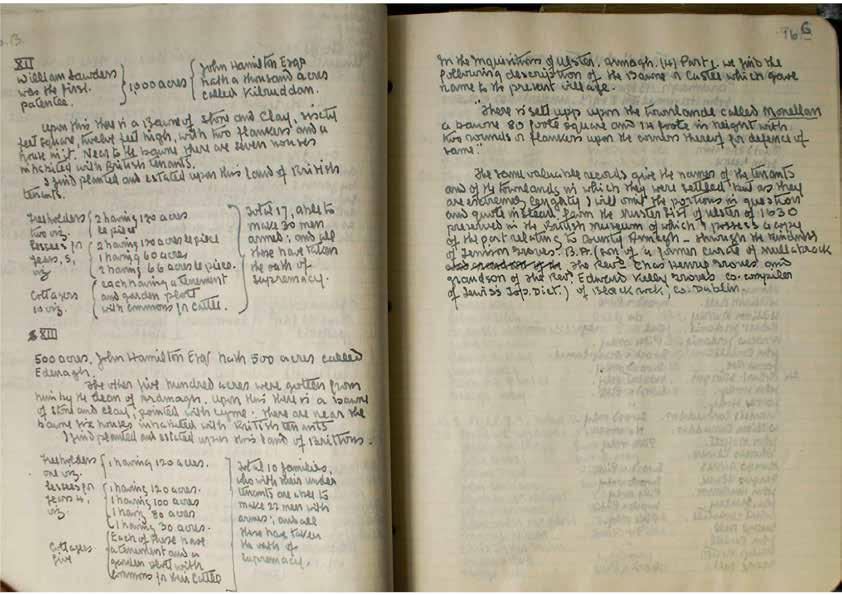 13.
XII
William Sawders
was the first
patentee.
1,000 acres
John Hamilton Esqr
hath a thousand acres
called Kilruddan.
Upon this there is a Bawne of stone and clay, sixety
feet square, twelve feet high, with two flankers and a
house in it. Near to the bawne there are seven houses
inhabited with British tenants.
I find planted and estated upon this land of British
tenants.
Freeholders
two viz.
2 having 120 acres
le piece
Lessees for
years, 5,
viz
2 having 100 acres le piece
1 having 60 acres
2 having 66 acres le piece.
Cottagers
10 viz.
each having a tenement
and garden plott
with commons for cattle.
Total 17, able to
make 30 men
armed; and all
these have taken
the oath of
supremacy.
XIII
500 acres, John Hamilton Esqr hath 500 acres called
Edenagh.
The other five hundred acres were gotten from
him by the dean of Ardmagh. Upon this there is a bawne
of stone and clay; pointed with lyme; there are near the
bawne six houses inhabited with British tenants
I find planted and estated upon this land of Brittons.
Freeholders
one viz.
1 having 120 acres.
Lessees for
years 4,
viz.
1 having 120 acres.
1 having 100 acres
1 having 80 acres
1 having 30 acres.
Cottages
five
Each of these have
a tenement and a
garden plott with
commons for their cattle
Total 10 families,
who with their under
tenants are able to
make 22 men with
armes; and all
these have taken
the oath of
supremacy.
96 G
In the Inquisitions of Ulster, Armagh (4) Part 1. we find the
following description of the Bawne or Castle which gave
name to the present village.
"There is sett upp upon the townlande called Monellan
a bawne 80 foote square and 14 foote in height with
two rounds or flankers upon the corners thereof for defence of
same."
The same valuable records give the names of the tenants
and of the townlands in which they were settled but as they
are extremely lengthy I will omit the portions in question
and quote instead, from the Muster List of Ulster of 1630
preserved in the British Museum of which I possess a copy
of the part relating to County Armagh - through the kindness
of Tenison Groves. B.A. (son of a former curate of Mullabrack
the Revd. Chas Henry Groves and
grandson of the Revd. Edward Kelly Groves co. compiler
of Lewis's Top. Dict.) of Blackrock, Co. Dublin.